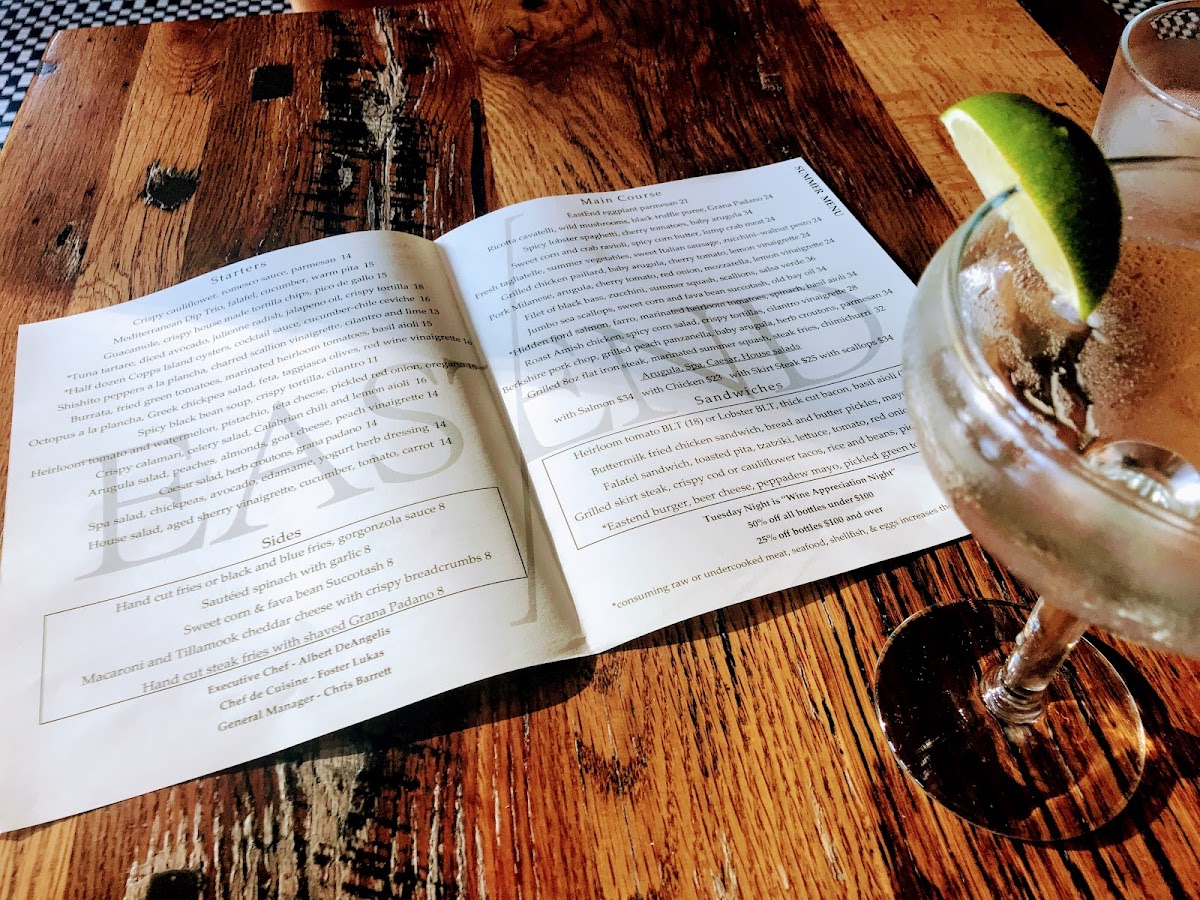 Starters
Crispy cauliflower, romesco sauce, parmesan 14
Mediterranean Dip Trio, falafel, cucumber, warm pita 15
Guacamole, crispy house made tortilla chips, pico de gallo 15
*Tuna tartare, diced avocado, julienne radish, jalapeno oil, crispy tortilla 18
*Half dozen Copps Island oysters, cocktail sauce, cucumber-chile ceviche 16
Shishito peppers a la plancha, charred scallion vinaigrette, cilantro and lime 13
Burrata, fried green tomatoes, marinated heirloom tomatoes, basil aioli 15
Octopus a la plancha, Greek chickpea salad, feta, taggiasca olives, red wine vinaigrette 16
Spicy black bean soup, crispy tortilla, cilantro 11
Heirloom tomato and watermelon, pistachio, feta cheese, pickled red onion, oregano 15
Crispy calamari, celery salad, Calabrian chili and lemon aioli 16
Arugula salad, peaches, almonds, goat cheese, peach vinaigrette 14
Caesar salad, herb croutons, grana padano 14
Spa salad, chickpeas, avocado, edamame, yogurt herb dressing 14
House salad, aged sherry vinaigrette, cucumber, tomato, carrot 14
Sides
Hand cut fries or black and blue fries, gorgonzola sauce 8
Sautéed spinach with garlic 8
Sweet corn & fava bean Succotash 8
Macaroni and Tillamook cheddar cheese with crispy breadcrumbs 8
Hand cut steak fries with shaved Grana Padano 8
Executive Chef - Albert DeAngelis
Chef de Cuisine - Foster Lukas
General Manager - Chris Barrett
EASTEND
SUMMER MENU
Main Course
EastEnd eggplant parmesan 21
Ricotta cavatelli, wild mushrooms, black truffle puree, Grana Padano 24
Spicy lobster spaghetti, cherry tomatoes, baby arugula 34
Sweet corn and crab ravioli, spicy corn butter, lump crab meat 24
Fresh tagliatelle, summer vegetables, sweet Italian sausage, zucchini-walnut pesto 24
Grilled chicken paillard, baby arugula, cherry tomato, lemon vinaigrette 24
Pork Milanese, arugula, cherry tomato, red onion, mozzarella, lemon vinaigrette 24
Filet of black bass, zucchini, summer squash, scallions, salsa verde 36
Jumbo sea scallops, sweet corn and fava bean succotash, old bay oil 34
*Hidden fjord salmon, farro, marinated heirloom tomatoes, spinach, basil aioli 34
Roast Amish chicken, spicy corn salad, crispy tortilla, cilantro vinaigrette 28
Berkshire pork chop, grilled peach panzanella, baby arugula, herb croutons, parmesan 34
Grilled 8oz, flat iron steak, marinated summer squash, steak fries, chimichurri 32
Arugula, Spa, Caesar, House Salads
with Salmon $34 with Chicken $25 with Skirt Steak $25 with scallops $34
Sandwiches
Heirloom tomato BLT (18) or Lobster BLT, thick cut bacon, basil aioli
Buttermilk fried chicken sandwich, bread and butter pickles, mayo
Falafel sandwich, toasted pita, tzatziki, lettuce, tomato, red onion
Grilled skirt steak, crispy cod or cauliflower tacos, rice and beans,
*Eastend burger, beer cheese, peppadew mayo, pickled green
Tuesday Night is "Wine Appreciation Night"
50% off all bottles under $100
25% off bottles $100 and over
*consuming raw or undercooked meat, seafood, shellfish, & eggs increases the